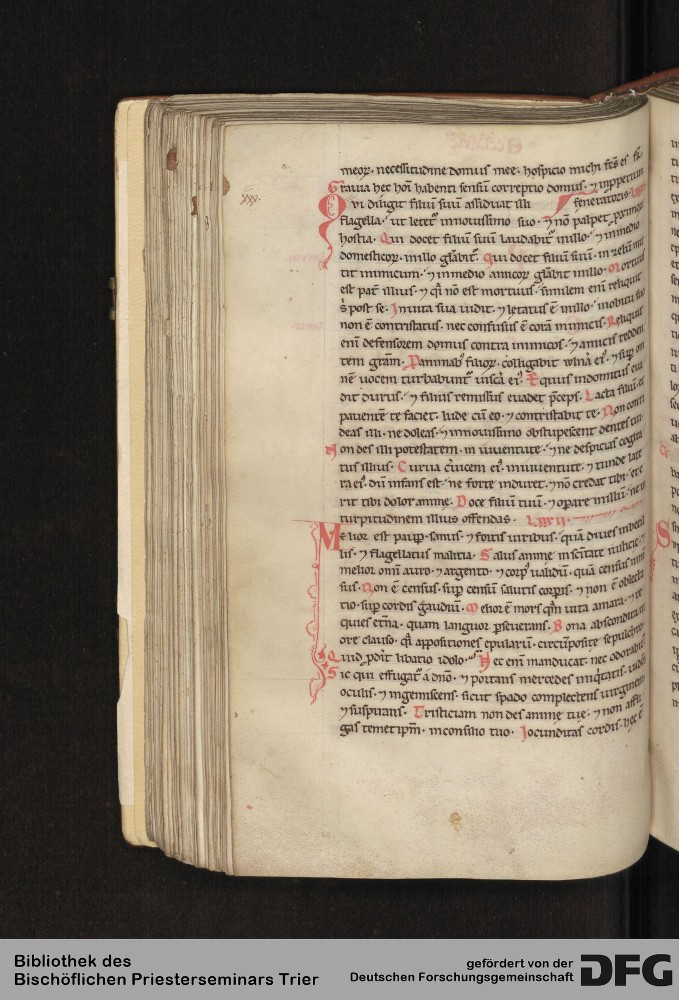 meoꝝ. necessitudine domus mee. hospicio michi fcs̄ es fr̄.
Grauia hec hōi habenti sensū correptio domus. ⁊ inpperium
Qvi diligit filiū suū assiduat illi feneratoris.
xxx.
flagella. ut letet᷑ in nouissimo suo. ⁊ nō palpet proximoꝝ
hostia. Qui docet filiū suū laudabit᷑ in illo. ⁊ in medio
domesticoꝝ. in illo gl̄abit᷑. Qui docet filiū suū. in zelum mit
tit inimicum. ⁊ in medio amicoꝝ gl̄abit᷑ in illo. Mortuus
est pat̄ illius. ⁊ q̄i nō est mortuus. similem eni reliquit
s; post se. In uita sua uidit. ⁊ letatus ē in illo. in obitu suo
non ē contristatus. nec confusus ē corā inimicis. Reliquit
enī defensorem domus contra inimicos. ⁊ amicis redden
tem grām. P animab; filioꝝ. colligabit uulna ei᷒. ⁊ sup om
nē uocem turbabunt᷑ uiscā ei᷒. Equus indomitus eua
dit durus. ⁊ filius remissus euadet p̄ceps. Lacta filiū. et
pauentē te faciet. lude cū eo. ⁊ contristabit te. Non corri
deas illi. ne doleas. ⁊ in nouissimo obstupescent dentes tui.
Non des illi potestatem. in iuuentute. ⁊ ne despicias cogita
tus illius. Curua c̄uicem ei᷒. in iuuentute. ⁊ tunde late
ra ei᷒. dū infans est. ne forte induret. ⁊ nō credat tibi. et e
rit tibi dolor anime. Doce filiū tuū. ⁊ opare in illū. ne in
turpitudinem illius offendas.
Melior est paup. sanus. ⁊ fortis uiribus. quā diues inbecil
lis. ⁊ flagellatus malitia. Salus anime in sc̄itate iusticie. ⁊
melior omī auro. ⁊ argento. ⁊ corp᷒ ualidū. quā census inmē
sus. Non ē census. sup censū salutis corpis. ⁊ non ē oblecta
tio. sup cordis gaudiū. Melior ē mors q̄m uita amara. ⁊ re
quies et̄na. quam languor pseuerans. Bona abscondita in
ore clauso. q̄i appositiones epularū. circūposite sepulchro.
Quid pdit libatio idolo. Nec eni manducat. nec odorabit᷑
Sic qui effugat᷑ a dn̄o. ⁊ portans mercedes iniq̄tatis. uides
oculis. ⁊ ingemiscens. sicut spado complectens uirginem
⁊ suspirans. Tristiciam non des anime tue. ⁊ non affli
gas temet ipm̄. in consilio tuo. Iocunditas cordis. hec ē
Bibliothek des
Bischöflichen Priesterseminars Trier
gefördert von der
Deutschen Forschungsgemeinschaft
DFG